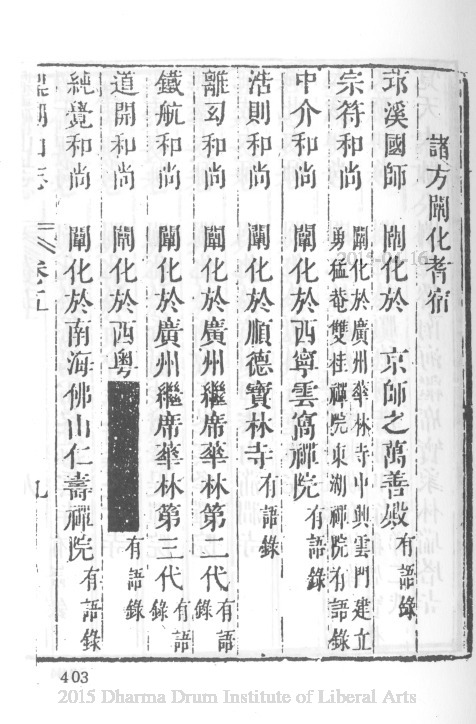 諸方闡化耆宿
邛溪國師 闡化於 京師之萬善殿 有語錄
宗符和尚 闡化於廣州華林寺中興雲門建立勇猛菴雙桂禪院東湖禪院有語錄
中介和尚 闡化於西寧雲窩禪院 有語錄
浩則和尚 闡化於順德寶林寺 有語錄
離幻和尚 闡化於廣州繼席華林第二代 有語錄
鐵航和尚 闡化於廣州繼席華林第三代 有語錄
道開和尚 闡化於西粵 有語錄
純覺和尚 闡化於南海佛山仁壽禪院 有語錄
山志 卷五 九
403
2015 Dharma Drum Institute of Liberal Arts